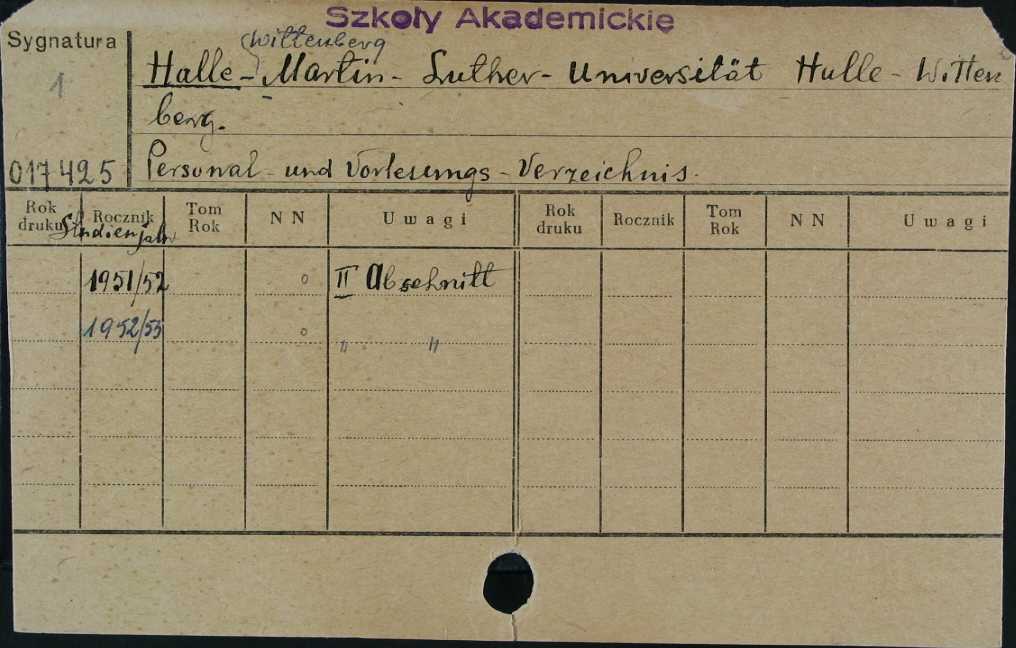 Szkoły Akademickie
Sygnatura
1
017425
(Wittenberg
Halle - Martin - Luther - Universität Halle - Witten
berg.
Personal - und Vorlesungs - Verzeichnis.
Rok druku Rocznik Tom Rok NN Uwagi Rok druku Rocznik Tom Rok NN Uwagi
Studienjahr
1951/52 o II Abschnitt
1952/53 o " "